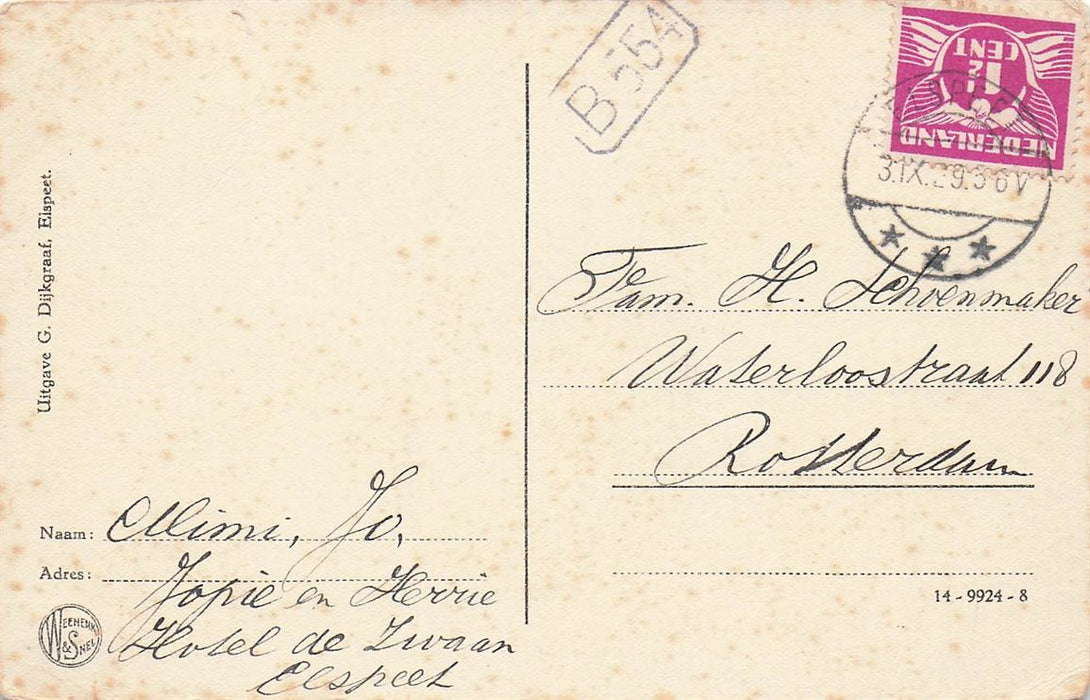 Uitgave G. Dijkgraaf, Elspeet.
B 554
1½
CENT
NEDERLAND
ELSPEET
3.IX.29.3-6V
Fam. H. Schoenmaker
Waterloostraat 118
Rotterdam
Naam: Mimi, Jo,
Adres: Jopie en Herrie
Hotel de Zwaan
Elspeet
WEENENK
& SNEL
14-9924-8